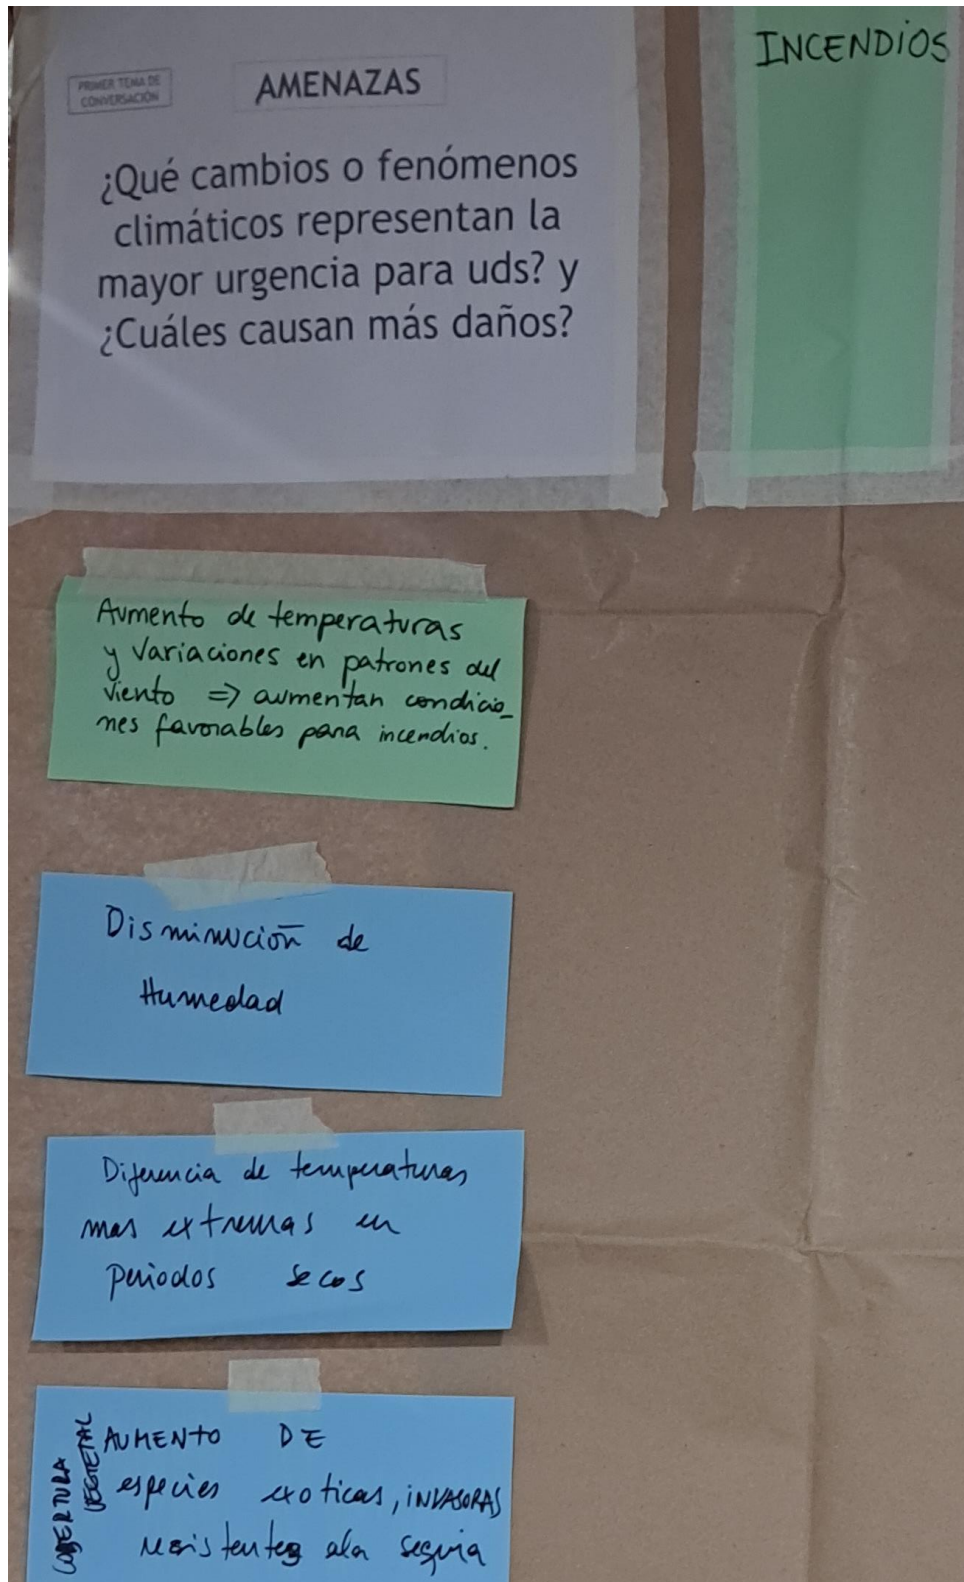 PRIMER TEMA DE
CONVERSACIÓN
AMENAZAS
¿Qué cambios o fenómenos
climáticos representan la
mayor urgencia para uds? y
¿Cuáles causan más daños?
INCENDIOS
Aumento de temperaturas
y variaciones en patrones del
viento => aumentan condicio_
nes favorables para incendios.
Disminución de
Humedad
Diferencia de temperaturas
mas extremas en
periodos secos
COBERTURA
VEGETAL
AUMENTO DE
especies exoticas, INVASORAS
resistentes a la sequia